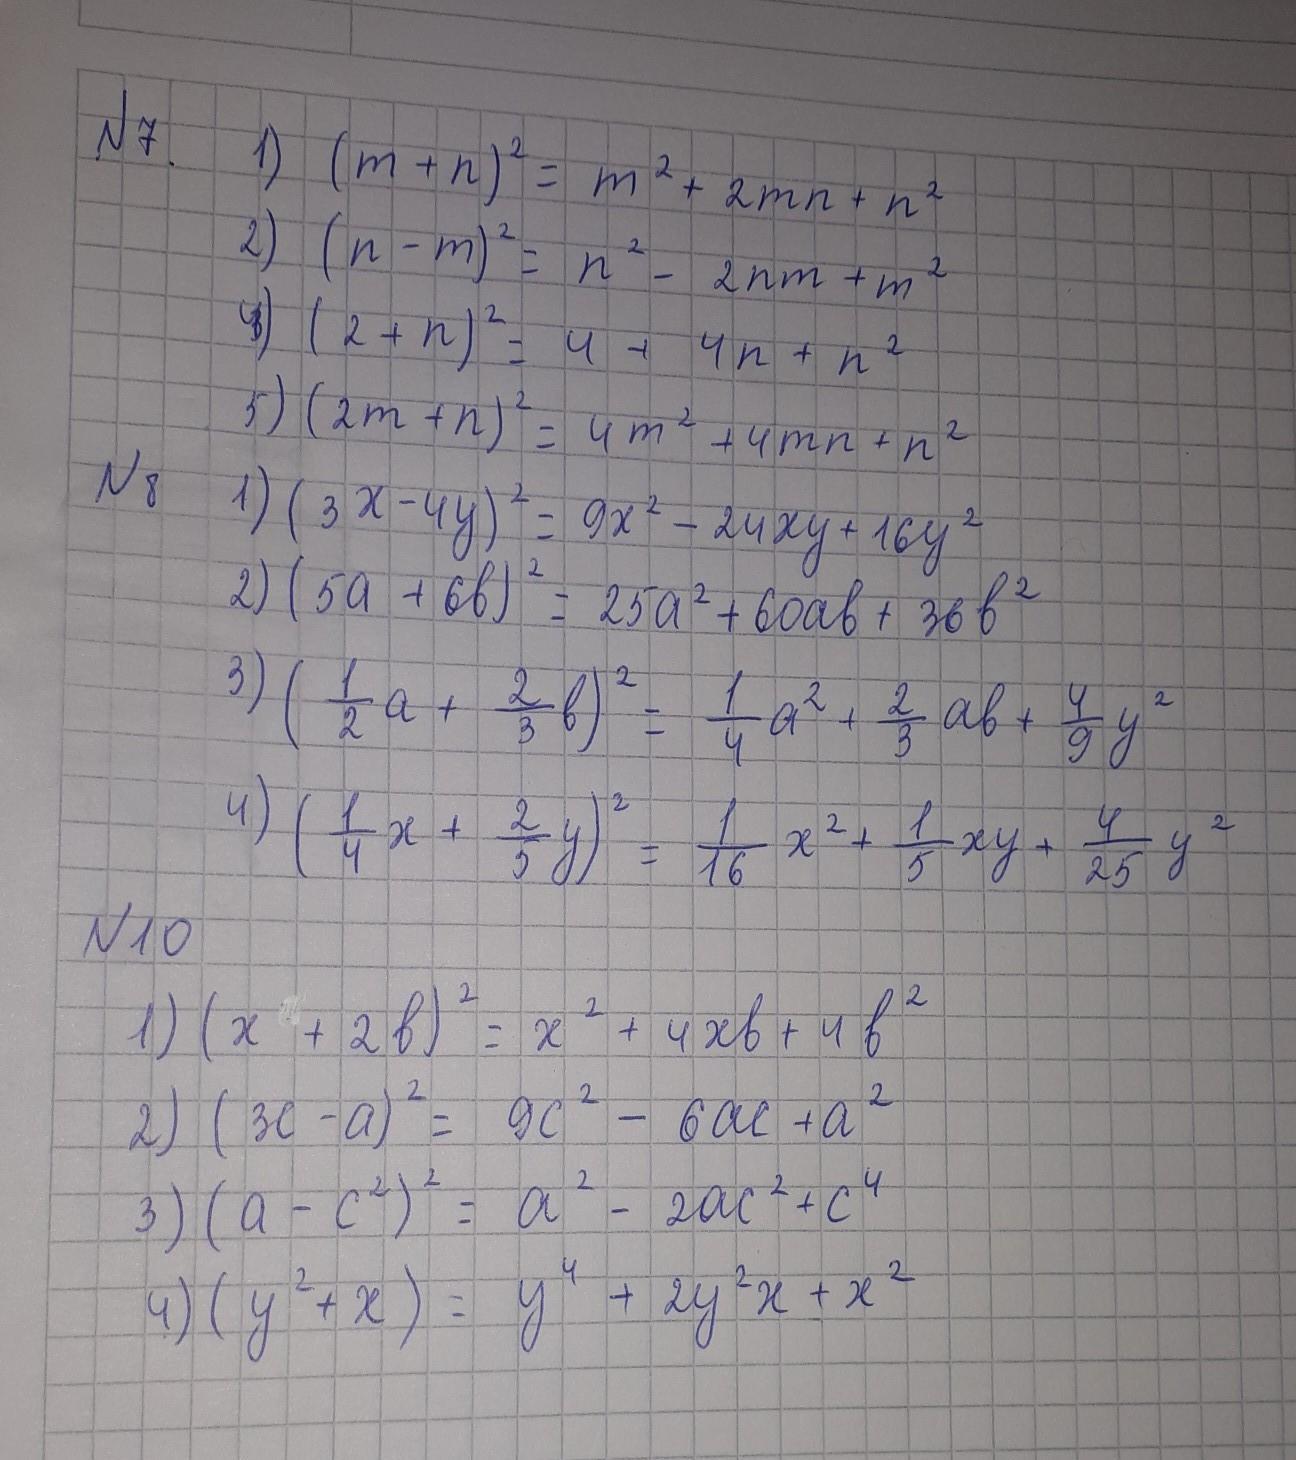 N7. 1) (m + n)² = m² + 2mn + n²
2) (n - m)² = n² - 2nm + m²
4) (2 + n)² = 4 + 4n + n²
5) (2m + n)² = 4m² + 4mn + n²
N8 1) (3x - 4y)² = 9x² - 24xy + 16y²
2) (5a + 6b)² = 25a² + 60ab + 36b²
3) (1/2 a + 2/3 b)² = 1/4 a² + 2/3 ab + 4/9 y²
4) (1/4 x + 2/5 y)² = 1/16 x² + 1/5 xy + 4/25 y²
N10
1) (x + 2b)² = x² + 4xb + 4b²
2) (3c - a)² = 9c² - 6ac + a²
3) (a - c²)² = a² - 2ac² + c⁴
4) (y² + x) = y⁴ + 2y²x + x²